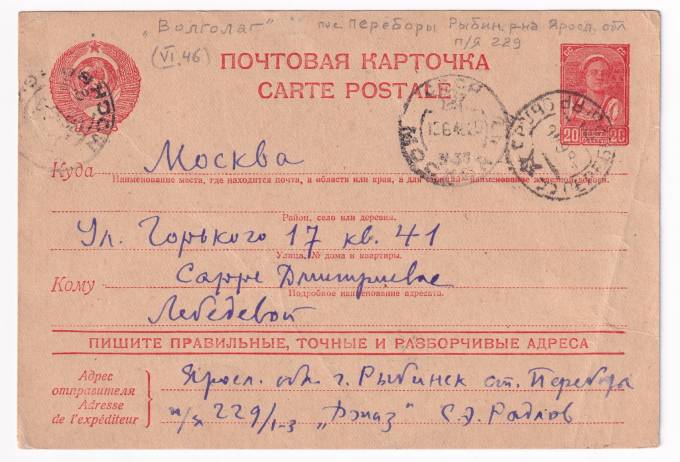 "Волголаг" пос. Переборы Рыбин. р-на Яросл. обл
(VI.46) п/я 229
ПОЧТОВАЯ КАРТОЧКА
CARTE POSTALE
20 20
Куда Москва
Наименование места, где находится почта, и области или края, а для станции наименование железной дороги.
Район, село или деревня.
Ул. Горького 17 кв. 41
Улица, № дома и квартиры.
Кому Сарре Дмитриевне
Подробное наименование адресата.
Лебедевой
ПИШИТЕ ПРАВИЛЬНЫЕ, ТОЧНЫЕ И РАЗБОРЧИВЫЕ АДРЕСА
Адрес отправителя
Adresse de l'expéditeur
Яросл. обл. г. Рыбинск ст. Перебора
п/я 229/1-3 "Джаз" С.Э. Радлов